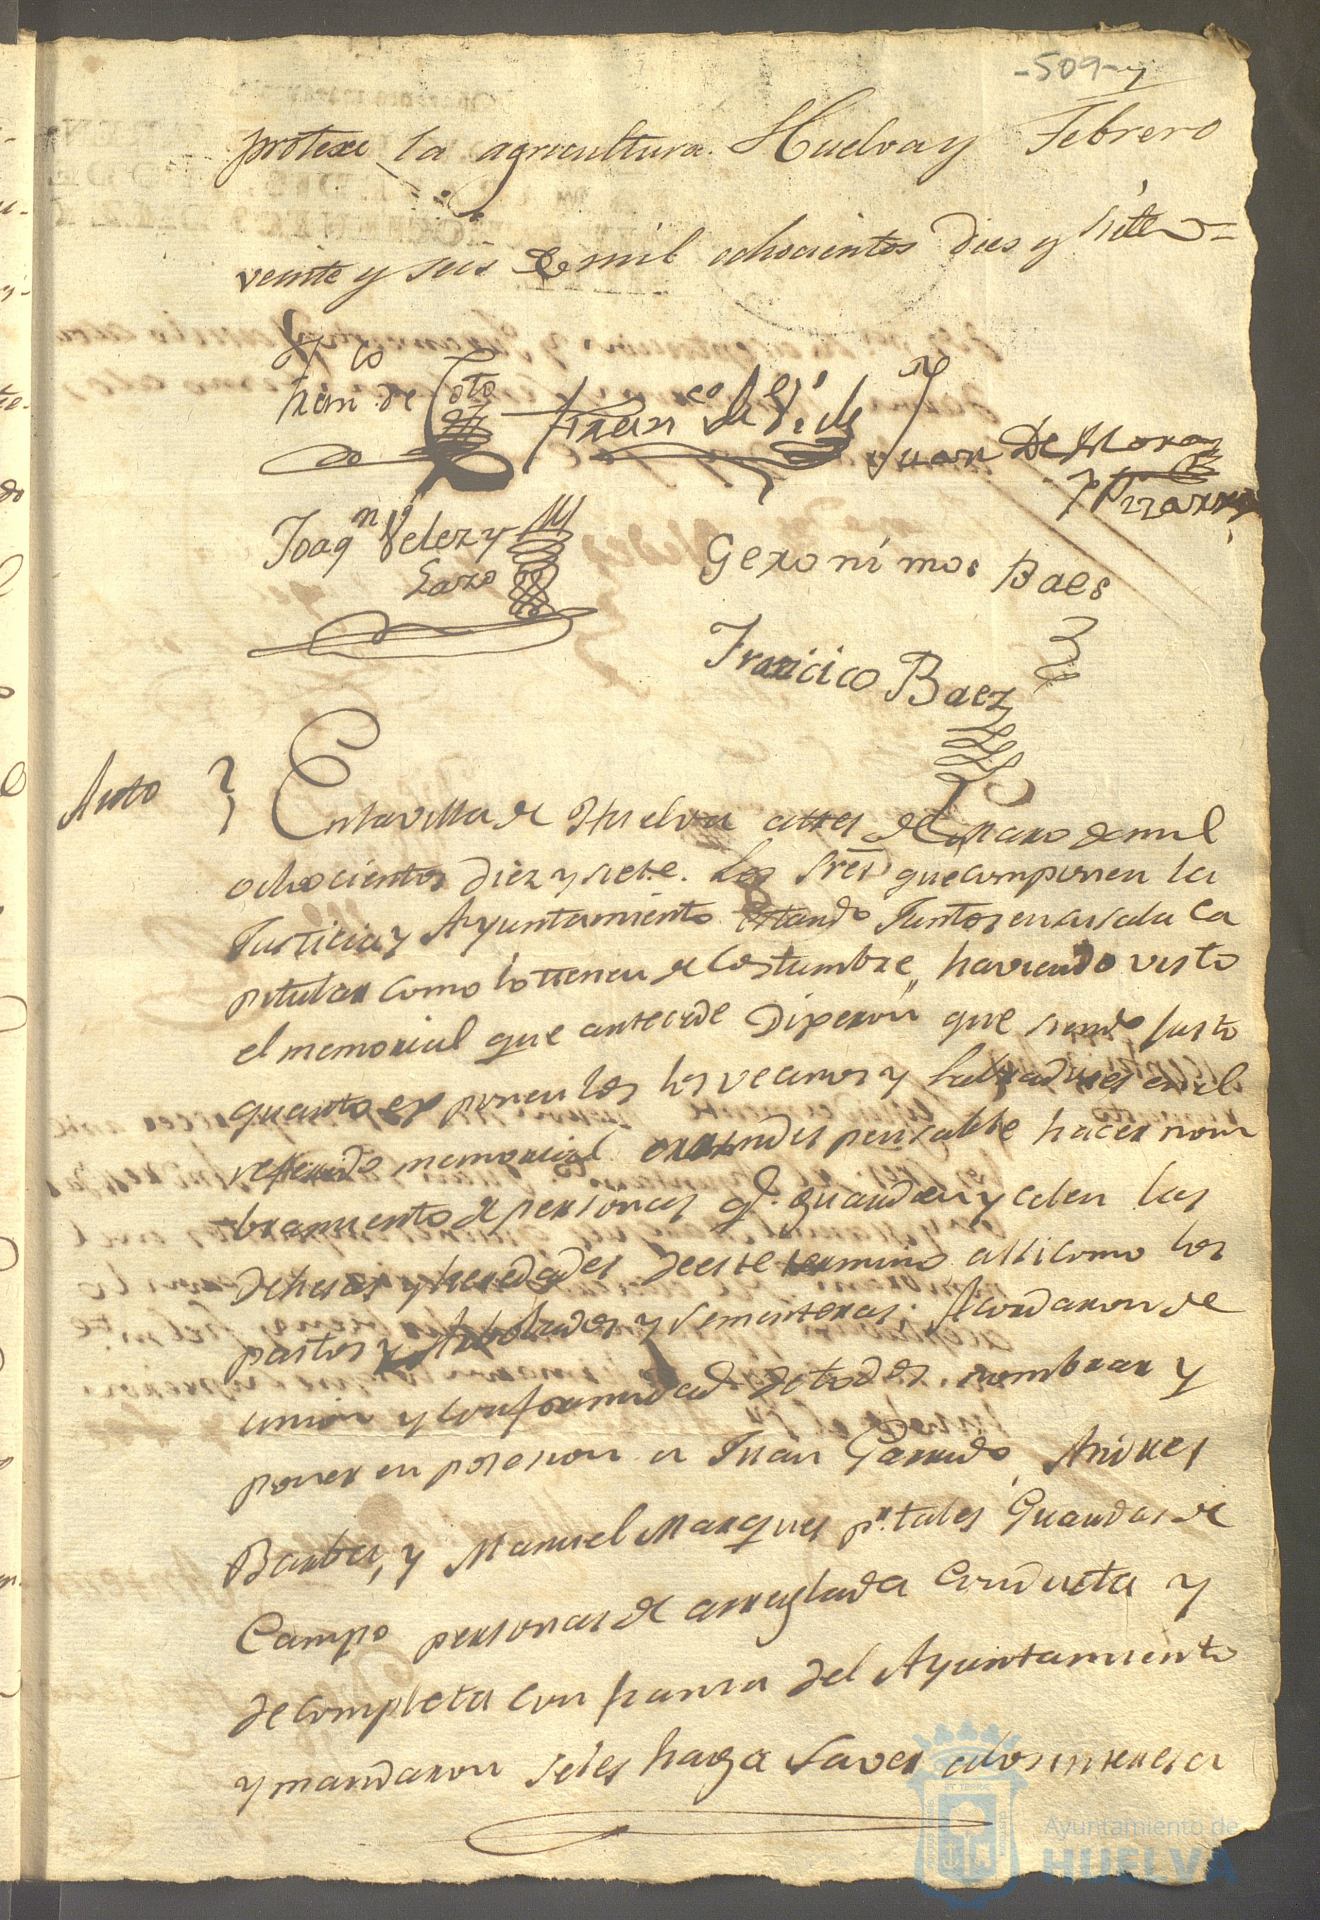 -509-
protexe la agricultura. Huelva y Febrero
veinte y seis de mil ochocientos dies y siette=
Fran.co de Coto
Fran.co de
Juan De Mora
y Pizarro
Joaqn Velez y
Lazo
Geronimo Baes
Francico Baez
Auto
En la villa de Huelva a tres de Marzo de mil
ochocientos diez y siete. Los Sres que componen la
Justicia y Ayuntamiento estando Juntos en su sala ca
pitular como lo tienen de costumbre, haviendo visto
el memorial que antecede Dixeron que siendo justo
quanto exponen los los vecinos y labradores en el
referido memorial indispensable hacer nom
bramiento de personas q.e guarden y celen las
dehesas y heredades de este termino, assi como los
pastos y Arbolados y sementeras; Acordaron de
union y conformidad de todos, nombrar y
poner en posesion a Juan Garrido, Andres
Barba, y Manuel Marques pr. tales Guardas de
Campo personas de arreglada conducta y
de completa confianza del Ayuntamiento
y mandaron se les haga saver a los interesa
Ayuntamiento de
HUELVA